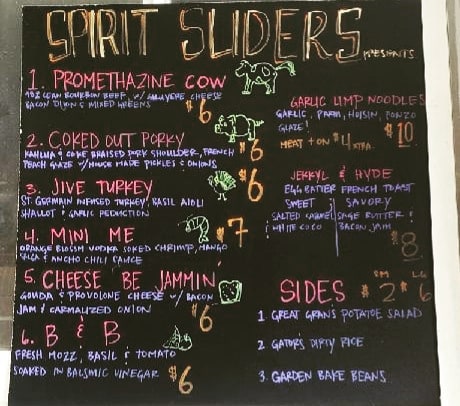 SPIRIT SLIDERS
PRESENTS
1. PROMETHAZINE COW
LEAN BOURBON BEEF, W/ CHEESE
BACON DIJON & MIXED GREENS
$6
2. COKED OUT PORKY
KAHLUA & COKE BRAISED PORK SHOULDER, FRENCH
PEACH GLAZE W/ HOUSE MADE PICKLES & ONIONS
$6
3. JIVE TURKEY
ST GERMAIN INFUSED TURKEY, BASIL AIOLI
SHALLOT & GARLIC REDUCTION
$6
4. MINI ME
ORANGE BLOSSM VODKA SOKED CHRIMP, MANGO
& ANCHO CHILI SAUCE
$7
5. CHEESE BE JAMMIN'
GOUDA & PROVOLONE CHEESE W/ BACON
JAM & CARMALIZED ONION
$6
6. B & B
FRESH MOZZ, BASIL & TOMATO
SOAKED IN BALSMIC VINEGAR
$6
GARLIC LIMP NOODLES
GARLIC, PARM, HOISIN, PONZO
GLAZE!
$10
MEAT + ON $4 XTRA.
JEKKYL & HYDE
EGG BATTER FRENCH TOAST
SWEET
SALTED CARAMEL
& WHITE COCO
SAVORY
SAGE BUTTER &
BACON JAM
$8
SIDES
SM LG
$2 $6
1. GREAT GRANS POTATOE SALAD
2. GATORS DIRTY RICE
3. GARDEN BAKE BEANS